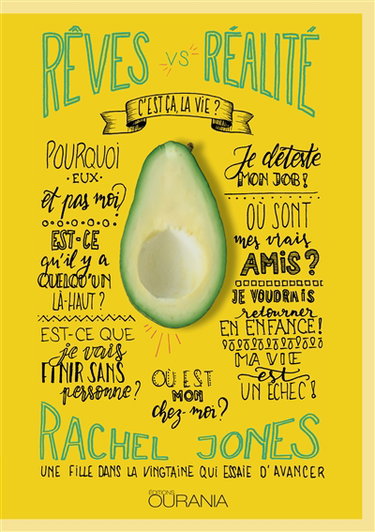 RÊVES VS RÉALITÉ
C'EST ÇA, LA VIE ?
POURQUOI
EUX
et pas moi?
EST-CE
qu'il y a
QUELQU'UN
LÀ-HAUT ?
EST-CE QUE
je vais
FINIR SANS
personne?
Je déteste
MON JOB!
OÙ SONT
mes vrais
AMIS ?
JE VOUDRAIS
retourner
EN ENFANCE!
MA VIE
est
UN ÉCHEC!
OÙ EST
MON
chez-moi?
RACHEL JONES
UNE FILLE DANS LA VINGTAINE QUI ESSAIE D'AVANCER
ÉDITIONS
OURANIA